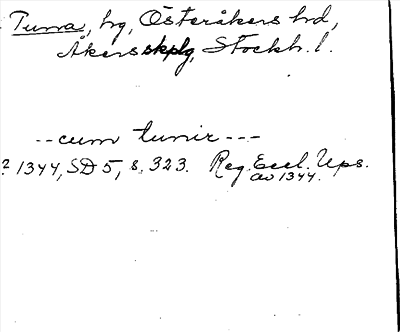 Tuna, by, Österåkers hd,
Åkers skplg, Stockh. l.
--cum tunir---
? 1344, SD 5, s. 323. Reg. Eccl. Ups.
av 1344.